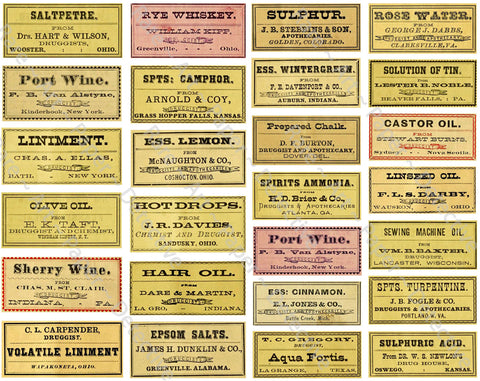 SALTPETRE.
FROM
Drs. HART & WILSON,
DRUGGISTS,
WOOSTER, OHIO.
Port Wine.
FROM
P. B. Van Alstyne,
DRUGGIST
Kinderhook, New York.
LINIMENT.
FROM
CHAS. A. ELLAS,
DRUGGIST
BATH, NEW-YORK.
OLIVE OIL.
FROM
E. K. TAFT,
DRUGGIST AND CHEMIST.
Sherry Wine.
FROM
CHAS. M. ST. CLAIR,
DRUGGIST
INDIANA, PA.
C. L. CARPENDER,
DRUGGIST.
VOLATILE LINIMENT
WAPAKONETA, OHIO.
RYE WHISKEY.
FROM
WILLIAM KIPP,
DRUGGIST
Greenville, Ohio.
SPTS: CAMPHOR.
FROM
ARNOLD & COY,
DRUGGISTS
GRASS HOPPER FALLS, KANSAS.
ESS. LEMON.
FROM
McNAUGHTON & CO.
DRUGGISTS
COSHOCTON, OHIO.
HOT DROPS.
FROM
J. R. DAVIES,
CHEMIST AND DRUGGIST,
SANDUSKY, OHIO.
HAIR OIL.
FROM
DARE & MARTIN,
DRUGGISTS
LA GRO, INDIANA
EPSOM SALTS.
FROM
JAMES H. DUNKLIN & CO.,
DRUGGISTS
GREENVILLE, ALABAMA.
SULPHUR.
FROM
J. B. STEBBINS & SON,
APOTHECARIES,
GOLDEN, COLORADO.
ESS. WINTERGREEN.
FROM
F. E. DAVENPORT & CO.
DRUGGISTS
AUBURN, INDIANA.
Prepared Chalk.
FROM
D. F. BURTON,
DRUGGIST AND APOTHECARY
DOVER, DEL.
SPIRITS AMMONIA.
FROM
H. D. Brier & Co.,
DRUGGISTS & APOTHECARIES
ATLANTA, GA.
Port Wine.
FROM
P. B. Van Alstyne,
DRUGGIST
Kinderhook, New York.
ESS: CINNAMON.
FROM
E. L. JONES & CO.,
DRUGGISTS & APOTHECARIES
Battle Creek, Mich.
T. C. GREGORY,
DRUGGIST
Aqua Fortis.
LA GRANGE, TEXAS.
ROSE WATER.
FROM
GEORGE J. DABBS,
DRUGGIST
CLARESVILLE, PA.
SOLUTION OF TIN.
FROM
LESTER B. NOBLE,
DRUGGIST
BEAVER FALLS, PA.
CASTOR OIL.
FROM
STEWART BURNS,
DRUGGIST
Sydney, Nova Scotia.
LINSEED OIL
FROM
F. L. S. DARBY,
DRUGGIST
WAUSEON, OHIO
SEWING MACHINE OIL
FROM
WM. B. BAXTER,
DRUGGIST,
LANCASTER, WISCONSIN.
SPTS. TURPENTINE.
FROM
J. B. FOGLE & CO.
DRUGGISTS & APOTHECARIES.
PORTLAND, VA.
SULPHURIC ACID.
FROM DR. W. S. NEWLON'S
DRUG HOUSE
OSWEGO, KANSAS.